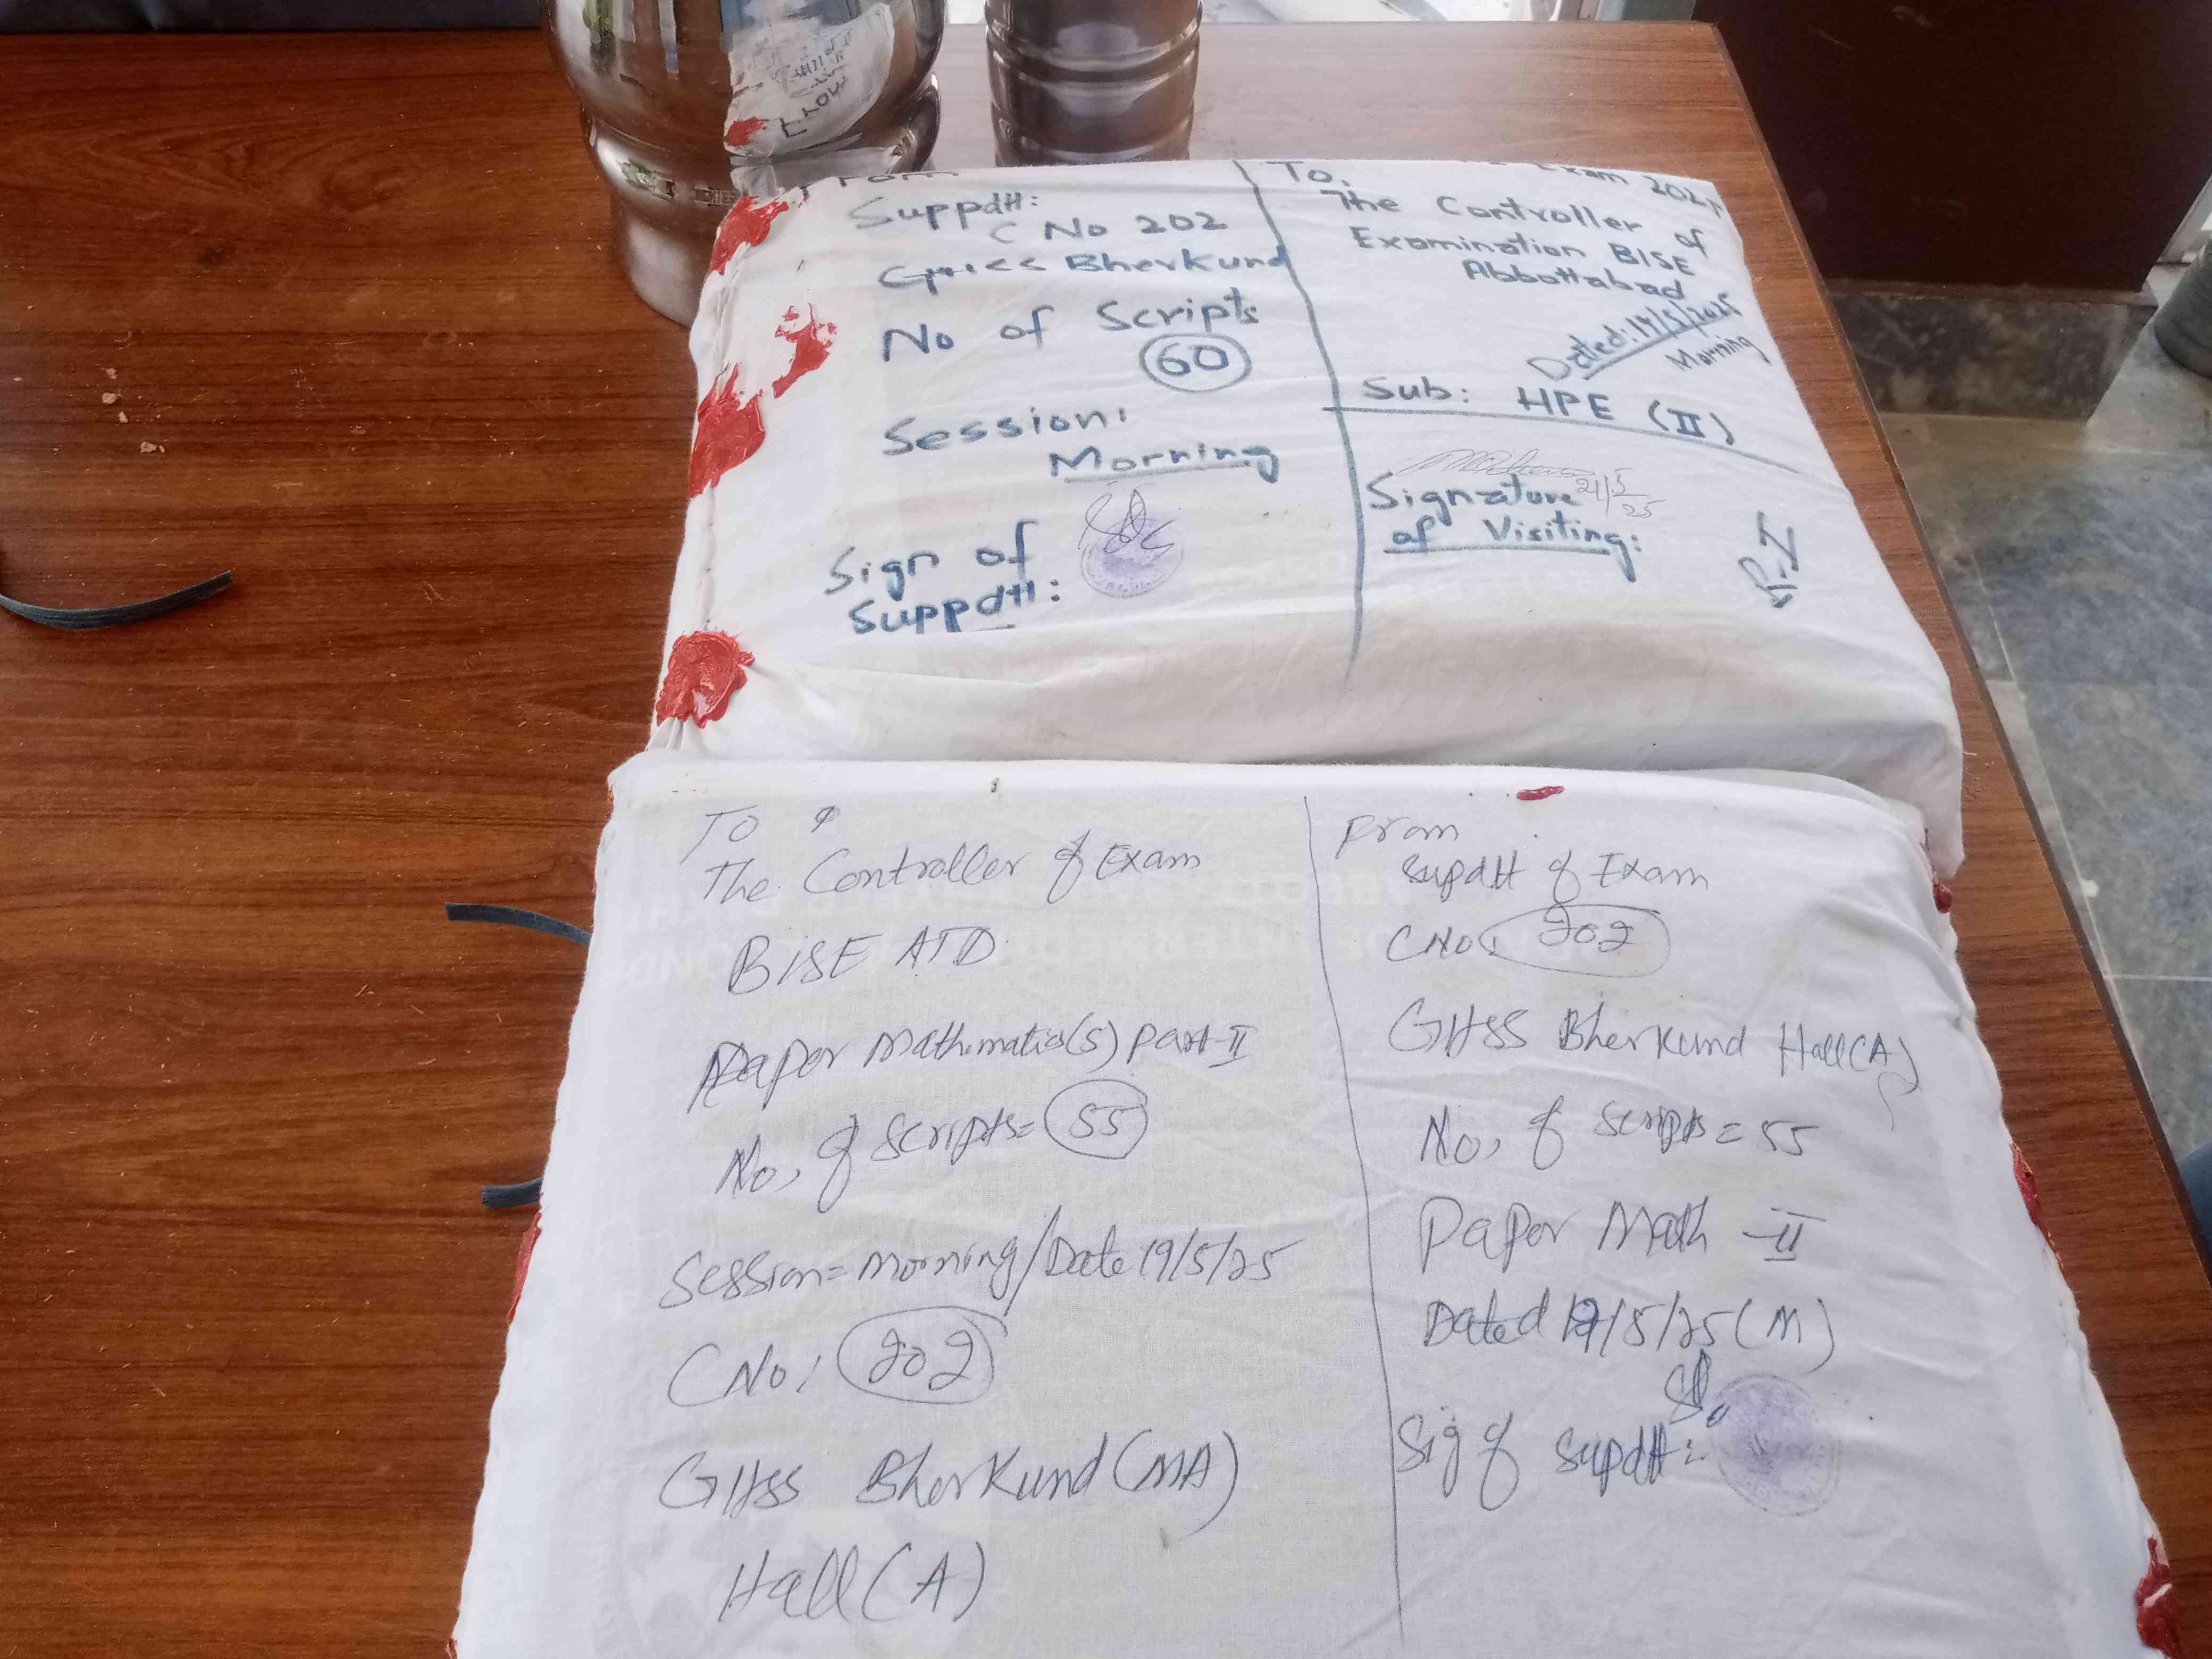 From
Suppdtt:
C No 202
GHSS Bherkund
No of Scripts
60
Session:
Morning
Sign of
Suppdtt:
Exam 202
To,
The Controller of
Examination BISE
Abbottabad
Morning
Sub: HPE (II)
21/5/25
Signature
of Visiting:
P.I
To
The Controller of Exam
BISE ATD
Paper Mathematic(s) Part-II
No, of Scripts= 55
Session= Morning/Date 19/5/25
C No: 202
GHSS Bherkund (MA)
Hall (A)
From
Supdtt of Exam
C No: 202
GHSS Bherkund Hall(A)
No, of Scripts = 55
Paper Math -II
Dated 19/5/25 (M)
Sig of Supdtt: